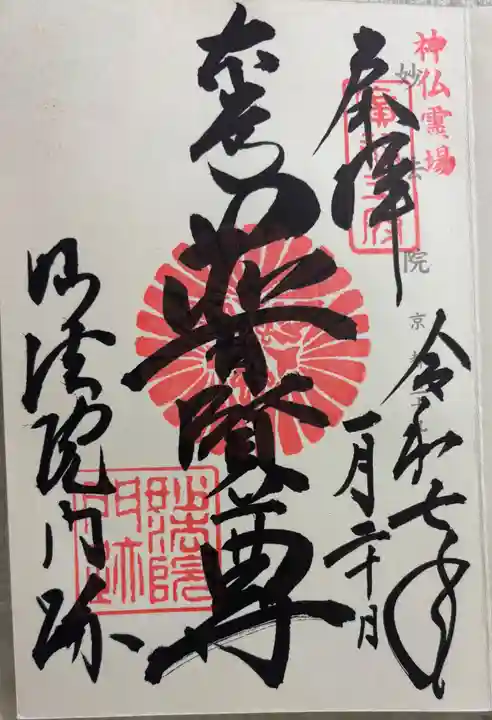 神仏霊場
妙法院 京都
奉拝
令和七年
一月二十日
普賢尊
妙法院門跡
妙法院
門跡